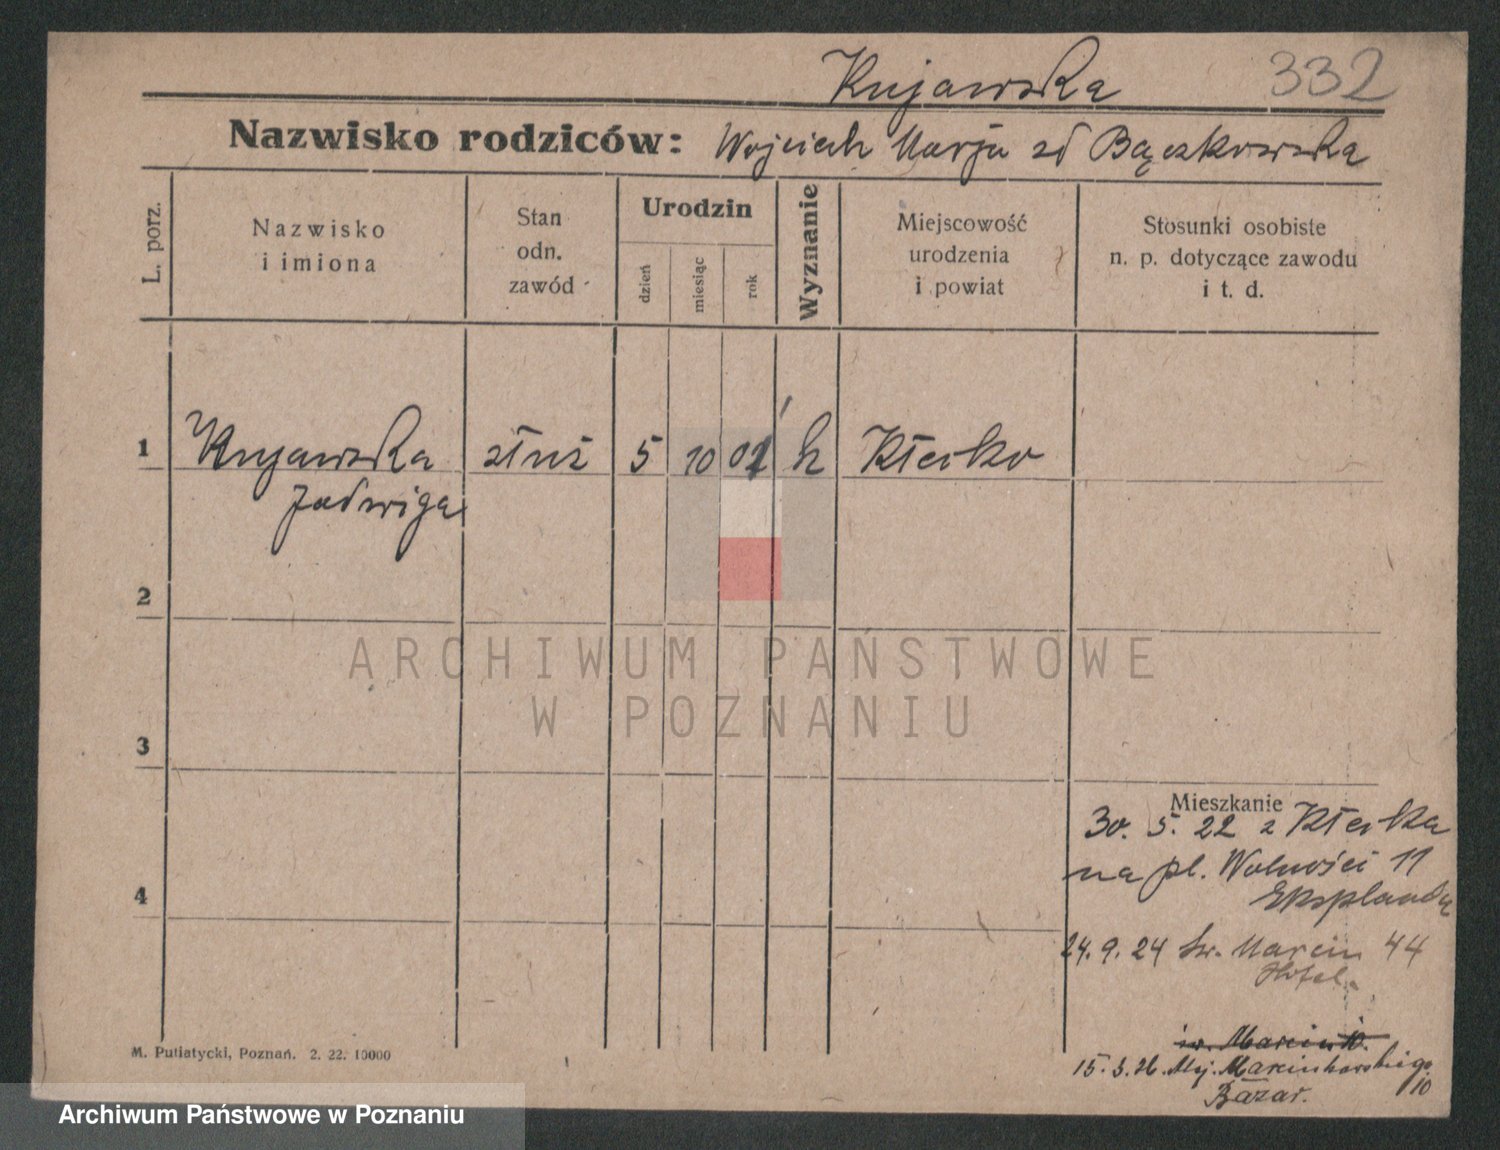 Kujawska 332
Nazwisko rodziców: Wojciech Marja zd Bączkowska
L. porz.
Nazwisko i imiona
Stan odn. zawód
Urodzin
dzień
miesiąc
rok
Wyznanie
Miejscowość urodzenia i powiat
Stosunki osobiste n. p. dotyczące zawodu i t. d.
1 Kujawska służ 5 10 02 k Kłecko
Jadwiga
2
ARCHIWUM PAŃSTWOWE
W POZNANIU
3
Mieszkanie
30. 5. 22 z Kłecka
na pl. Wolności 11
4
24. 9. 24 Św. Marcin 44
Hotel.
św. Marcin
15. 3. 26. Alej. Marcinkowskiego
10
Bazar.
M. Putiatycki, Poznań. 2. 22. 10000
Archiwum Państwowe w Poznaniu